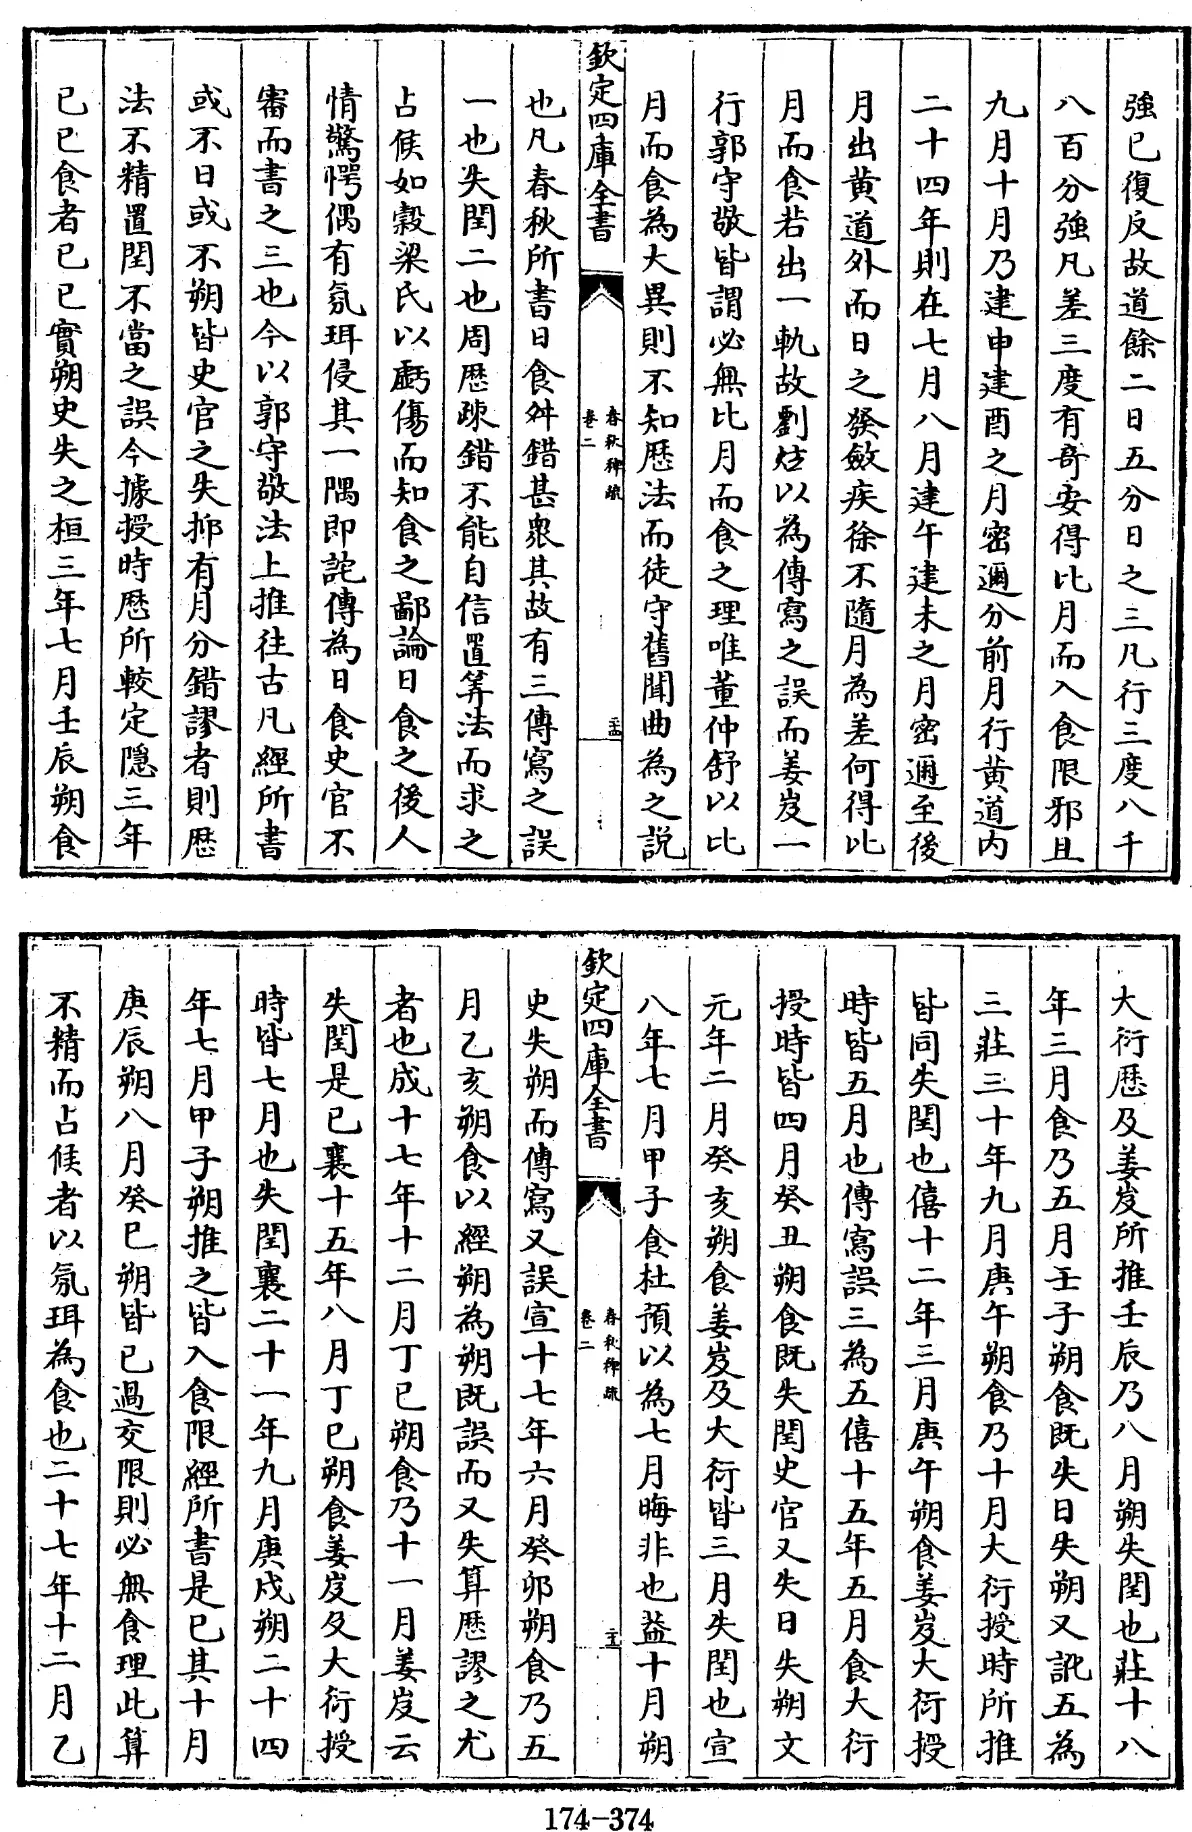 強已復反故道餘二日五分日之三凡行三度八千
八百分強凡差三度有竒安得比月而入食限邪且
九月十月乃建申建酉之月密邇分前月行黄道内
二十四年則在七月八月建午建未之月密邇至後
月出黄道外而日之發斂疾徐不隨月為差何得比
月而食若出一軌故劉炫以為傳寫之誤而姜岌一
行郭守敬皆謂必無比月而食之理唯董仲舒以比
月而食為大異則不知厯法而徒守舊聞曲為之說
欽定四庫全書
春秋稗疏
卷二
二十四
也凡春秋所書日食舛錯甚衆其故有三傳寫之誤
一也失閏二也周厯疎錯不能自信置筭法而求之
占候如榖梁氏以虧傷而知食之鄙論日食之後人
情驚愕偶有氛珥侵其一隅即詫傳為日食史官不
審而書之三也今以郭守敬法上推往古凡經所書
或不日或不朔皆史官之失抑有月分錯謬者則厯
法不精置閏不當之誤今據授時厯所較定隱三年
己巳食者己巳實朔史失之桓三年七月壬辰朔食
大衍厯及姜岌所推壬辰乃八月朔失閏也莊十八
年三月食乃五月壬子朔食既失日失朔又訛五為
三莊三十年九月庚午朔食乃十月大衍授時所推
皆同失閏也僖十二年三月庚午朔食姜岌大衍授
時皆五月也傳寫誤三為五僖十五年五月食大衍
授時皆四月癸丑朔食既失閏史官又失日失朔文
元年二月癸亥朔食姜岌及大衍皆三月失閏也宣
八年七月甲子食杜預以為七月晦非也益十月朔
欽定四庫全書
春秋稗疏
卷二
二十五
史失朔而傳寫又誤宣十七年六月癸卯朔食乃五
月乙亥朔食以經朔為朔既誤而又失算厯謬之尤
者也成十七年十二月丁巳朔食乃十一月姜岌云
失閏是已襄十五年八月丁巳朔食姜岌及大衍授
時皆七月也失閏襄二十一年九月庚戌朔二十四
年七月甲子朔推之皆入食限經所書是已其十月
庚辰朔八月癸巳朔皆已過交限則必無食理此算
不精而占候者以氛珥為食也二十七年十二月乙
174-374